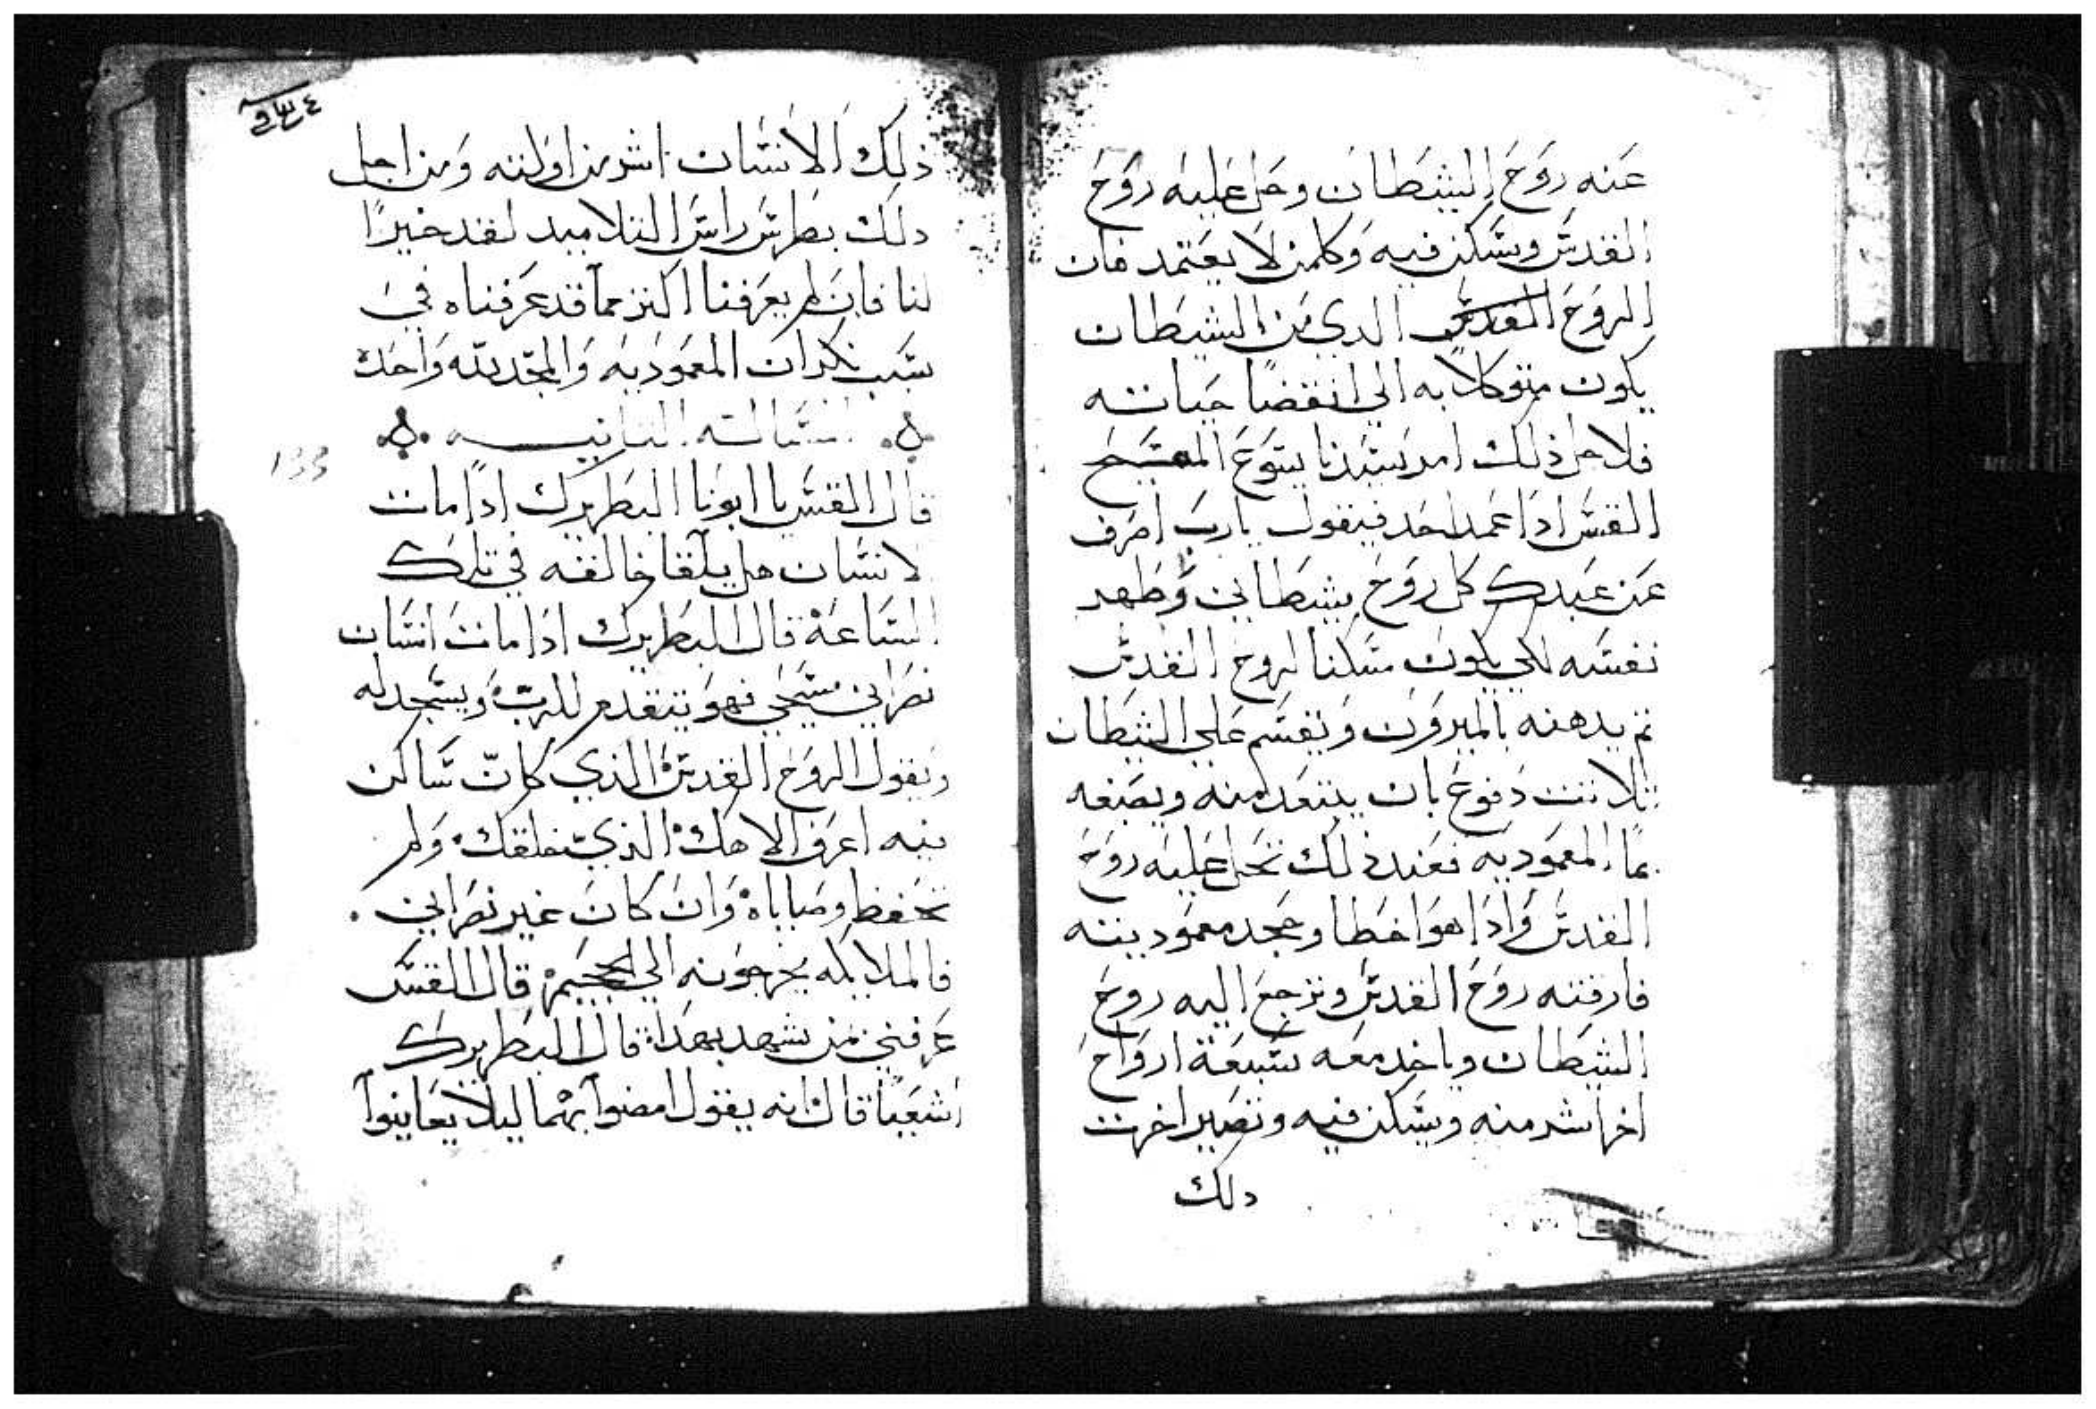 عنه روح الشيطان وحل عليه روح
القدس ويسكن فيه وكلمن لا يعتمد فان
الروح المقدس الدي من الشيطان
يكون متوكلاً به الي انقضا حياته
فلاجل ذلك امر سيدنا يسوع المسيح
القس ادا عمد احد فيقول يارب اصرف
عن عبدك كل روح شيطاني وطهر
نفسه لكي يكون مسكنا لروح القدس
تم يدهنه بالميرون ويقسم علي الشيطان
تلاتت دفوع بان يبتعد منه ويصبغه
بما المعموديه فعند ذلك تحل عليه روح
القدس وادا هو اخطا وجحد معموديته
فارقته روح القدس وترجع اليه روح
الشيطان وياخد معه سبعة ارواح
اخر اشر منه ويسكن فيه وتصير اخرت
دلك
٩٣٤
ذلك الانسان اشر من اولته ومن اجل
دلك بطرس راس التلاميد لقد خيراً
لنا فان لم يعرفنا اكتر مما قد عرفناه في
سبب نكران المعموديه والمجد لله واحده
المساله التانيه
133
قال القس يا ابونا البطريرك اداً مات
لانسان هل يلقا خالقه في تلك
الساعة قال البطريرك ادا مات انسان
نصراني مسيحي فهو يتقدم للرب ويسجد له
ويقول الروح القدس الذي كان ساكن
فيه اعرف الاهك الذي خلقك ولم
تحفظ وصاياه وان كان غير نصراني
فالملايكه يخرجونه الي الجحيم قال القس
عرفني من يشهد بهدا قال البطريرك
اشعيا قال انه يقول امضوا بهما ليلا يعاينوا